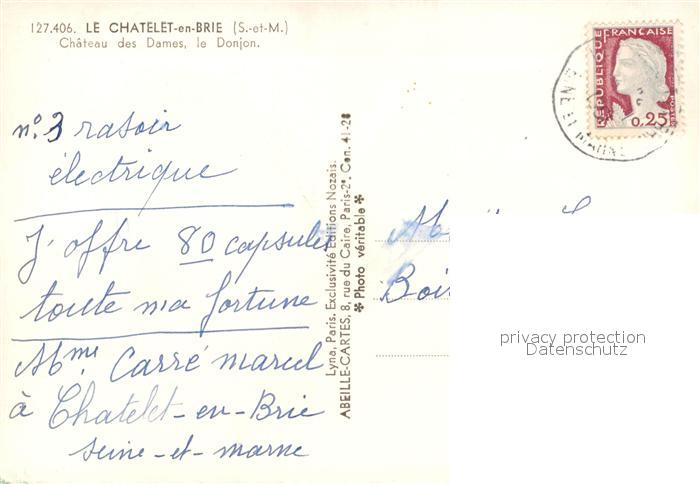 127.406. LE CHATELET-en-BRIE (S.-et-M.)
Château des Dames, le Donjon.
n° 3 rasoir
électrique
J'offre 80 capsules
toute ma fortune
Mme Carré marcel
à Chatelet-en-Brie
seine-et-marne
Lyna, Paris. Exclusivité Editions Nozais.
ABEILLE-CARTES, 8, rue du Caire, Paris-2e. Cen. 41-28
✻ Photo véritable ✻
REPUBLIQUE FRANCAISE
0,25
SEINE ET MARNE
privacy protection
Datenschutz